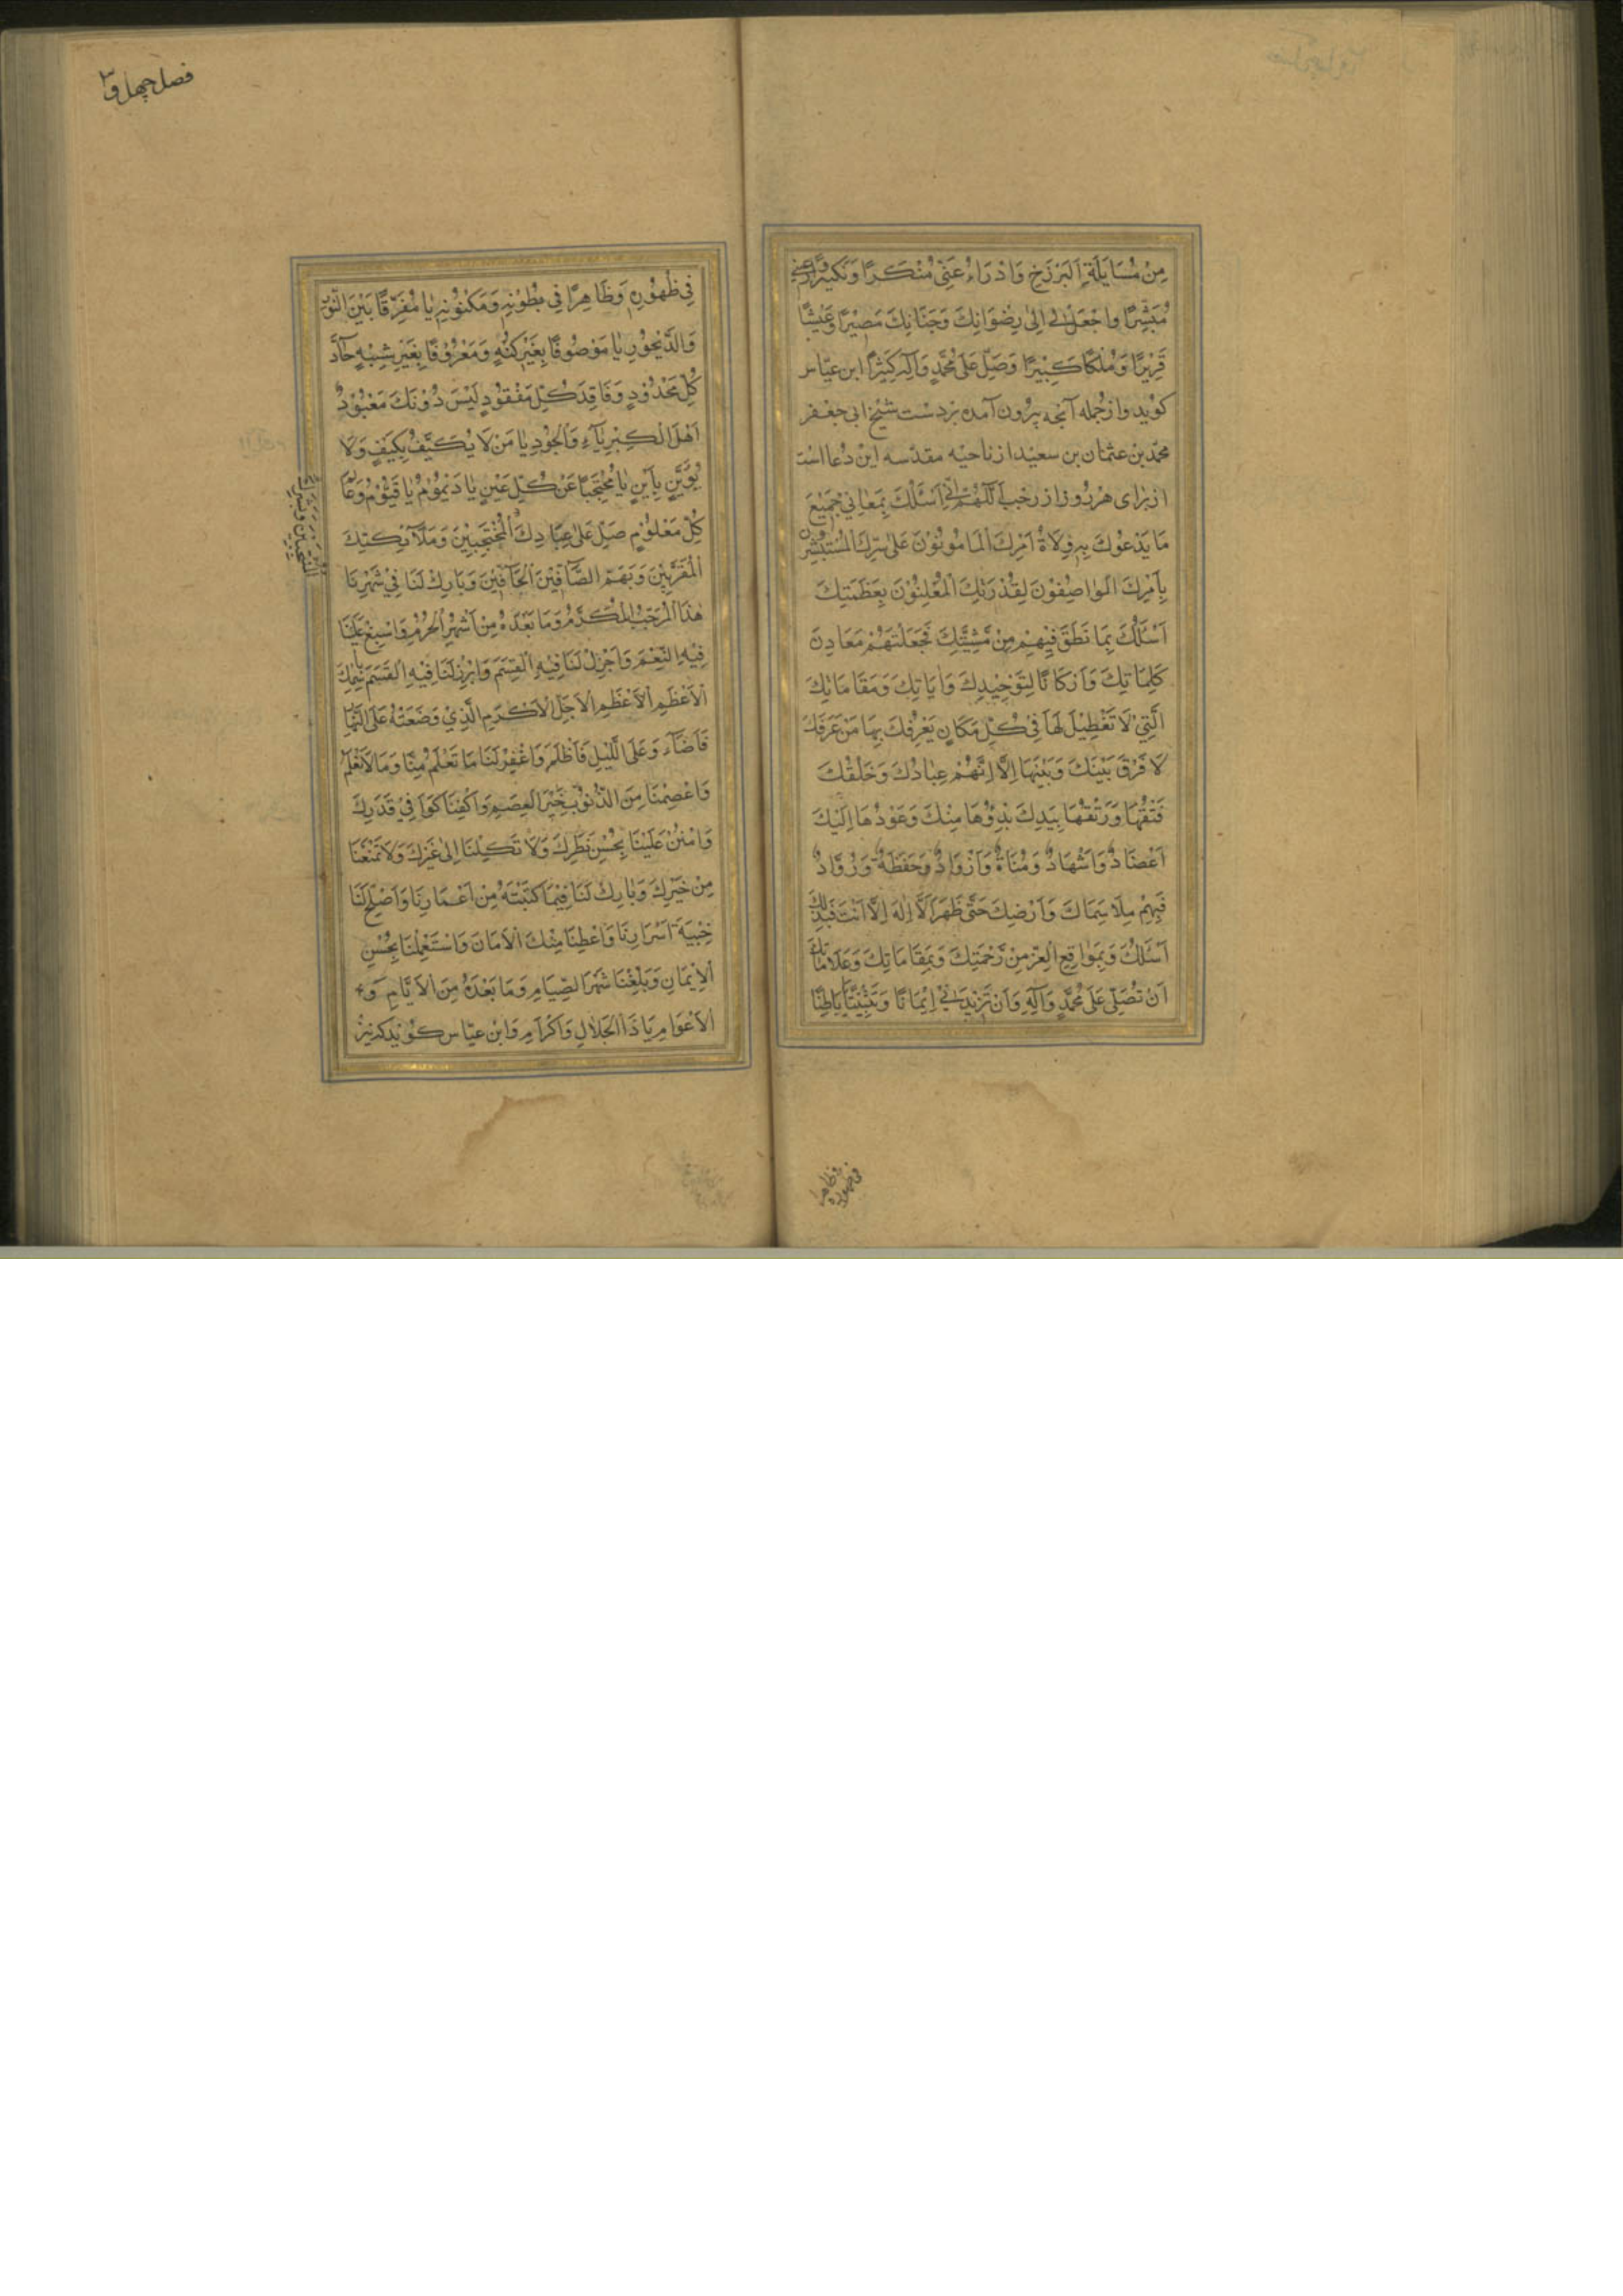 مِنْ مُسَايَلَةِ الْبَرْزَخِ وَادْرَاءْ عَنِّي مُنْكَرًا وَنَكِيرًا وَارِعَيْنِي
مُبَشِّرًا وَاجْعَلْ لِي اِلىٰ رِضْوَانِكَ وَجَنَانِكَ مَصِيْرًا وَعَيْشًا
قَرِيْرًا وَمُلْكًا كَبِيْرًا وَصَلِّ عَلىٰ مُحَمَّدٍ وَآلِهِ كَثِيْرًا ابن عيّاس
كويد واز جمله آنچه بيرون آمده بر دست شيخ ابى جعفر
محمّد بن عثمان بن سعيد از ناحيه مقدّسه اين دعا است
از براى هر روز از رجب اَللّٰهُمَّ اِنِّي اَسْئَلُكَ بِمَعَانِي جَمِيْعِ
مَا يَدْعُوْكَ بِهِ وُلَاةُ اَمْرِكَ الْمَامُوْنُوْنَ عَلىٰ سِرِّكَ الْمُسْتَبْشِرُوْنَ
بِاَمْرِكَ الْوَاصِفُوْنَ لِقُدْرَتِكَ الْمُعْلِنُوْنَ بِعَظَمَتِكَ
اَسْئَلُكَ بِمَا نَطَقَ فِيْهِمْ مِنْ مَشِيَّتِكَ فَجَعَلْتَهُمْ مَعَادِنَ
كَلِمَاتِكَ وَاَرْكَانًا لِتَوْحِيْدِكَ وَاٰيَاتِكَ وَمَقَامَاتِكَ
الَّتِيْ لَا تَعْطِيْلَ لَهَا فِيْ كُلِّ مَكَانٍ يَعْرِفُكَ بِهَا مَنْ عَرَفَكَ
لَا فَرْقَ بَيْنَكَ وَبَيْنَهَا اِلَّا اَنَّهُمْ عِبَادُكَ وَخَلْقُكَ
فَتْقُهَا وَرَتْقُهَا بِيَدِكَ بَدْؤُهَا مِنْكَ وَعَوْدُهَا اِلَيْكَ
اَعْضَادٌ وَاَشْهَادٌ وَمُنَاةٌ وَاَزْوَادٌ وَحَفَظَةٌ وَرُوَّادٌ
فَبِهِمْ مَلَاْتَ سَمَاكَ وَاَرْضِكَ حَتّٰى ظَهَرَ اَنْ لَا اِلٰهَ اِلَّا اَنْتَ فَبِذٰلِكَ
اَسْئَلُكَ وَبِمَوَاقِعِ الْعِزِّ مِنْ رَحْمَتِكَ وَبِمَقَامَاتِكَ وَعَلَامَاتِكَ
اَنْ تُصَلِّيَ عَلىٰ مُحَمَّدٍ وَآلِهِ وَاَنْ تَزِيْدَنِي اِيْمَانًا وَتَثْبِيْتًا يَا بَاطِنًا
فصل چهل و
فِي ظُهُوْرِهِ وَظَاهِرًا فِي بُطُوْنِهِ وَمَكْنُوْنِهِ يَا مُفَرِّقًا بَيْنَ النُّوْرِ
وَالدَّيْجُوْرِ يَا مَوْصُوْفًا بِغَيْرِ كُنْهٍ وَمَعْرُوْفًا بِغَيْرِ شِبْهٍ حَآدَّ
كُلِّ مَحْدُوْدٍ وَفَاقِدَ كُلِّ مَفْقُوْدٍ لَيْسَ دُوْنَكَ مَعْبُوْدٌ
اَهْلَ الْكِبْرِيَآءِ وَالْجُوْدِ يَا مَنْ لَا يُكَيَّفُ بِكَيْفٍ وَلَا
يُؤَيَّنُ بِاَيْنٍ يَا مُحْتَجِبًا عَنْ كُلِّ عَيْنٍ يَا دَيْمُوْمُ يَا قَيُّوْمُ وَعَالِمَ
كُلِّ مَعْلُوْمٍ صَلِّ عَلىٰ عِبَادِكَ الْمُحْتَجِبِيْنَ وَمَلَآئِكَتِكَ
الْمُقَرَّبِيْنَ وَبُهَمِ الصَّآفِّيْنَ الْحَآفِّيْنَ وَبَارِكْ لَنَا فِيْ شَهْرِنَا
هٰذَا الْمُرَجَّبِ الْمُكَرَّمِ وَمَا بَعْدَهُ مِنْ اَشْهُرِ الْحُرُمِ وَاسْبِغْ عَلَيْنَا
فِيْهِ النِّعَمَ وَاَجْزِلْ لَنَا فِيْهِ الْقِسَمَ وَابْرِزْ لَنَا فِيْهِ الْقَسَمَ بِاسْمِكَ
الْاَعْظَمِ الْاَعْظَمِ الْاَجَلِّ الْاَكْرَمِ الَّذِيْ وَضَعْتَهُ عَلَى النَّهَارِ
فَاَضَآءَ وَعَلَى اللَّيْلِ فَاَظْلَمَ وَاغْفِرْ لَنَا مَا تَعْلَمُ مِنَّا وَمَا لَا نَعْلَمُ
وَاعْصِمْنَا مِنَ الذُّنُوْبِ خَيْرَ الْعِصَمِ وَاكْفِنَا كَوَافِيْ قَدَرِكَ
وَامْنُنْ عَلَيْنَا بِحُسْنِ نَظَرِكَ وَلَا تَكِلْنَا اِلىٰ غَيْرِكَ وَلَا تَمْنَعْنَا
مِنْ خَيْرِكَ وَبَارِكْ لَنَا فِيْمَا كَتَبْتَهُ مِنْ اَعْمَارِنَا وَاَصْلِحْ لَنَا
خَبِيَّةَ اَسْرَارِنَا وَاَعْطِنَا مِنْكَ الْاَمَانَ وَاسْتَعْمِلْنَا بِحُسْنِ
الْاِيْمَانِ وَبَلِّغْنَا شَهْرَ الصِّيَامِ وَمَا بَعْدَهُ مِنَ الْاَيَّامِ وَ
الْاَعْوَامِ يَا ذَا الْجَلَالِ وَاكْرَامِ وَابن عيّاس كويد كه نيز